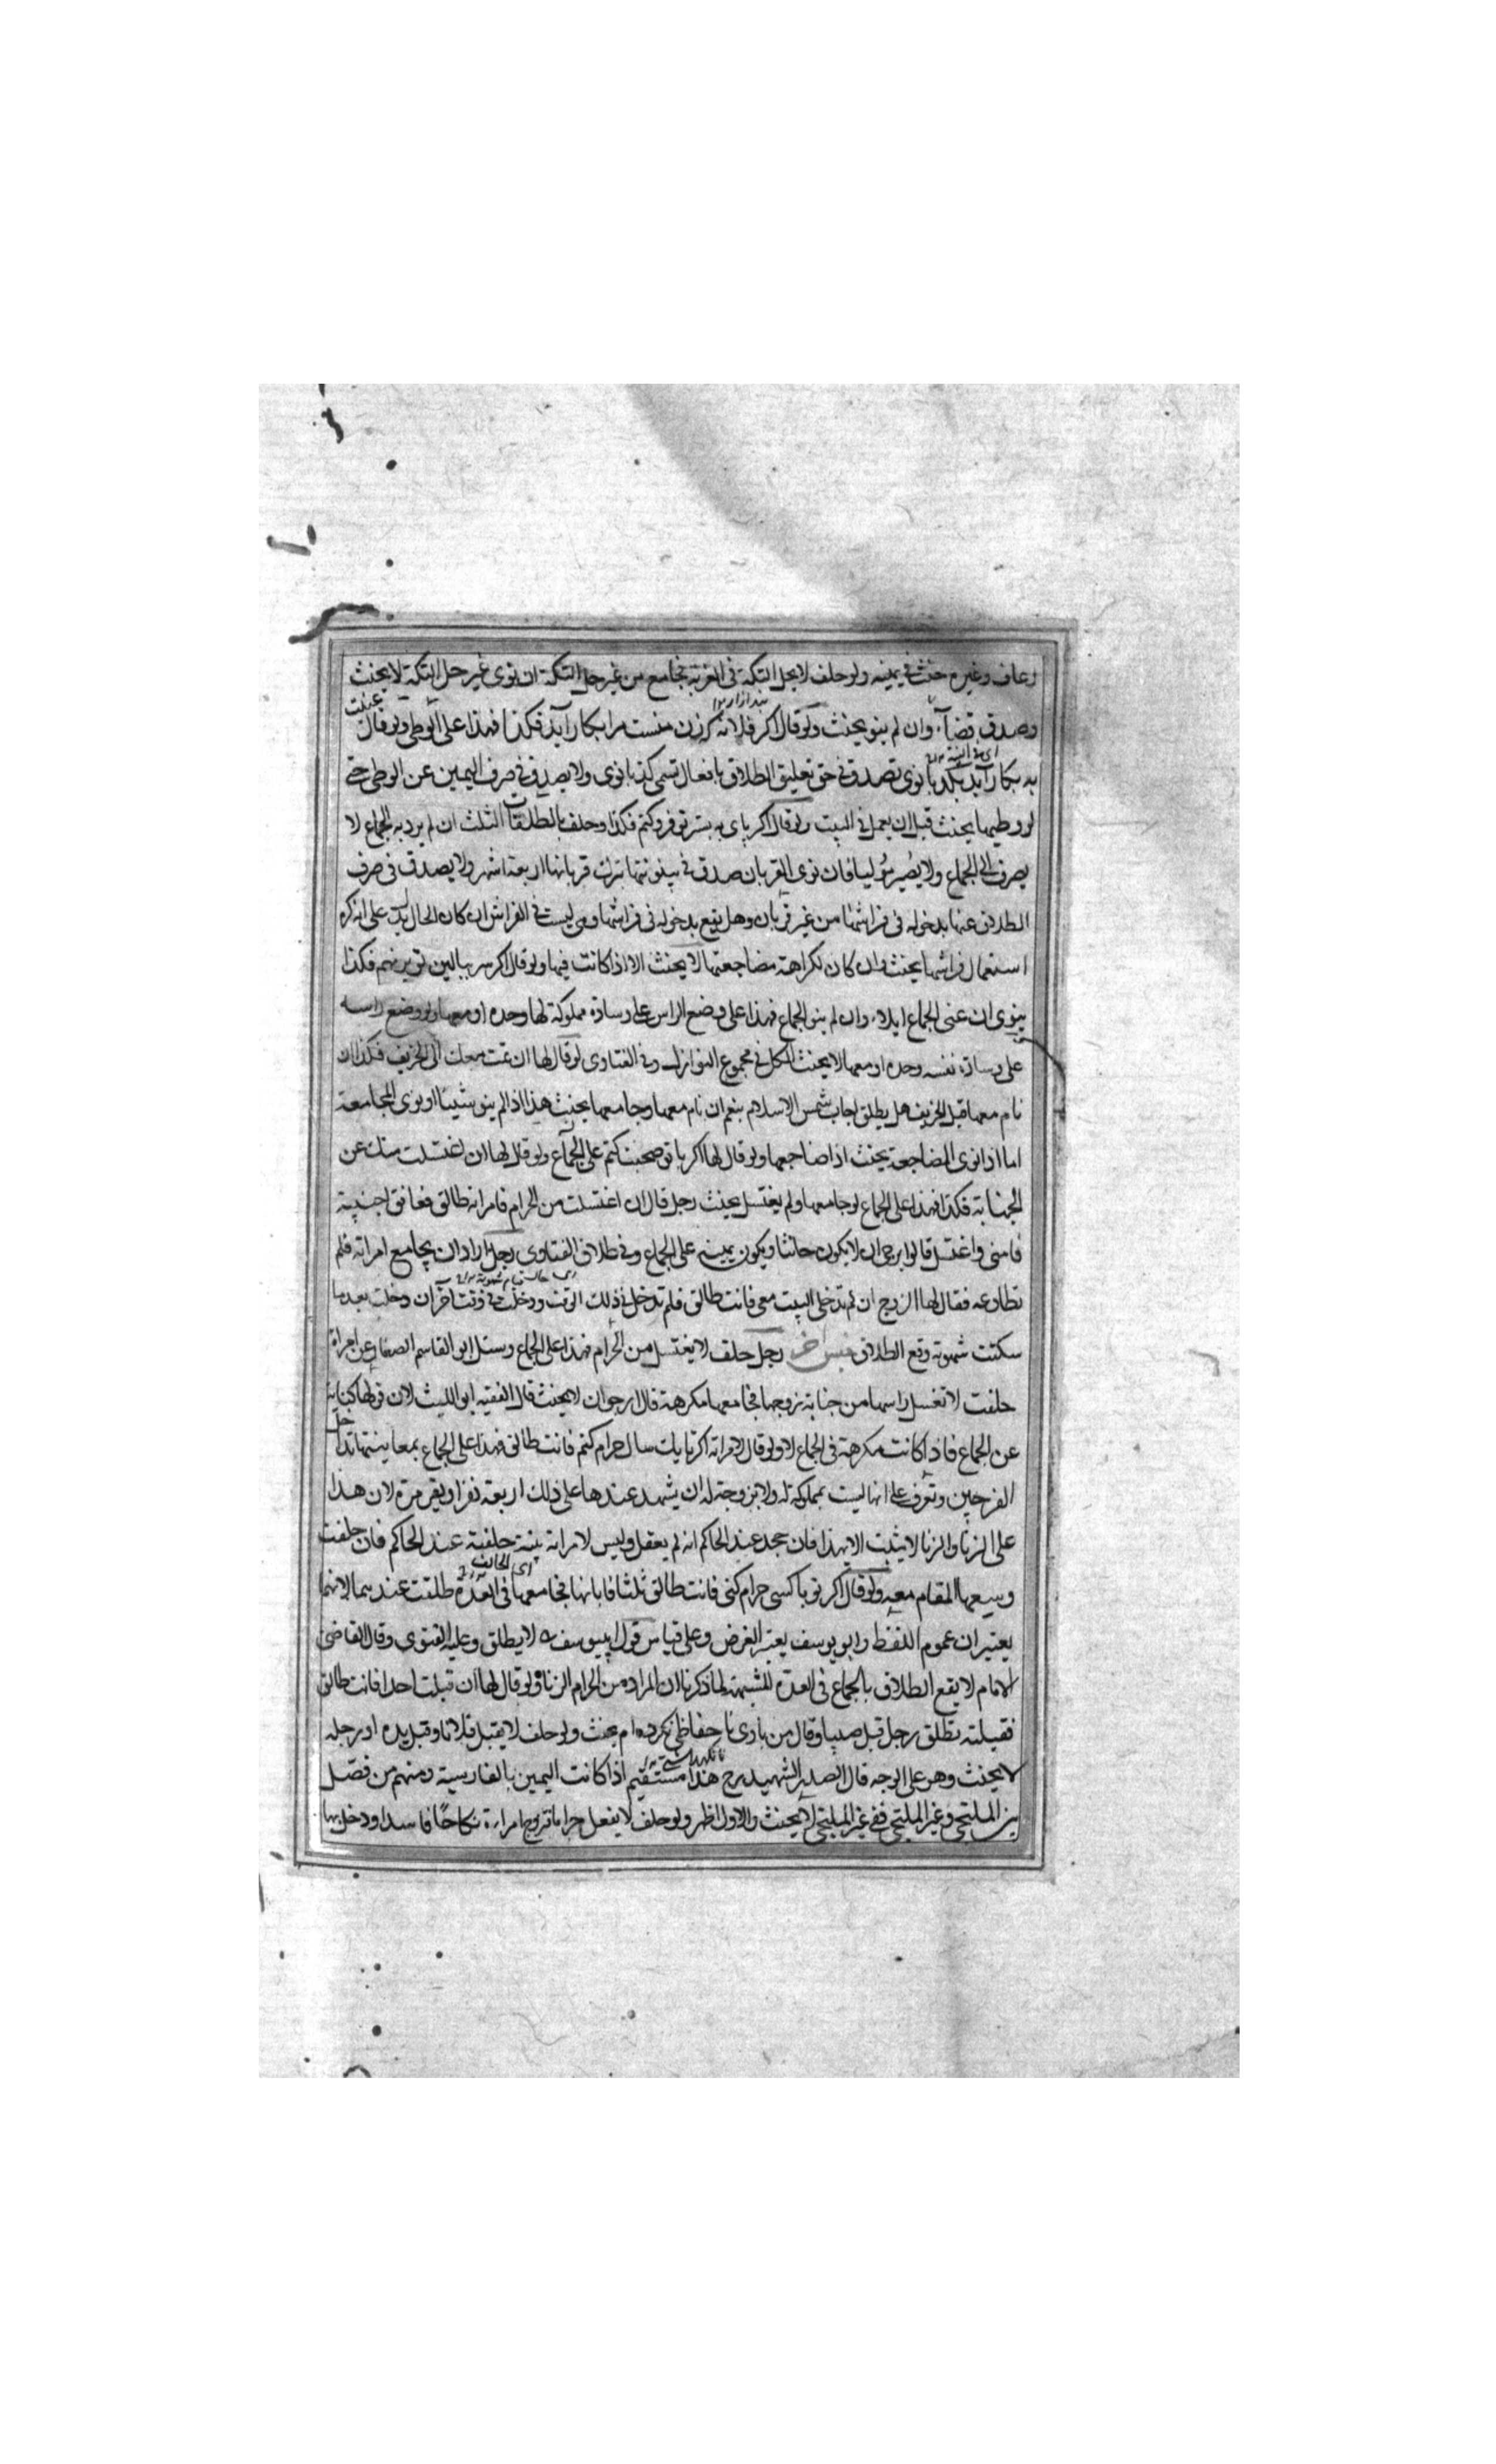 رعاف وغيره حنث في يمينه ولو حلف لا يحل التكة في الغربة فجامع من غير حل التكة ان نوى غير حل التكة لا يحنث
وصدق قضاء وان لم ينو يحنث ولو قال اكر فلانه كه زن منست مرا بكار آيد فكذا فهذا على الوطى ولو قال
به بكار آيد نوى تصدق في حق تعليق الطلاق بافعال نوى ولا يصدق في صرف اليمين عن الوطى حتى
لو وطيها يحنث قبل ان يعمل في البيت ولو قال اكر پاى به بستر تو فرو كنم فكذا وحلف بالطلقات الثلث ان لم يرد به الجماع لا
يصرف الى الجماع ولا يصير موليا فان نوى القربان صدق في بينونتها بترك قربانها اربعة اشهر ولا يصدق في صرف
الطلاق عنها بدخوله في فراشها من غير قربان وهل يقع بدخوله في فراشها وهي ليست في الفراش ان كان الحال يدل على انه كره
استعمال فراشها يحنث وان كان لكراهة مضاجعتها لا يحنث الا اذا كانت فيها ولو قال اكر سر ببالين تو برنهم فكذا
ينوى ان عنى الجماع ايلاء وان لم ينو الجماع فهذا على وضع الراس على وسادة مملوكة لها وحده او معها ولو وضع راسه
على وسادة نفسه وحده او معها لا يحنث الكل في مجموع النوازل وفي الفتاوى لو قال لها ان نمت معك الى الخريف فكذا ان
نام معها قبل الخريف هل يطلق اجاب شمس الاسلام بنعم ان نام معها وجامعها يحنث هذا اذا لم ينو شيئا او نوى المجامعة
اما اذا نوى المضاجعة يحنث اذا ضاجعها ولو قال لها اكر با تو صحبت كنم على الجماع ولو قال لها ان اغتسلت منك عن
الجنابة فكذا فهذا على الجماع لو جامعها ولم يغتسل يحنث رجل قال ان اغتسلت من الحرام فامراته طالق فعانق اجنبية
فامنى واغتسل قالوا يرجى ان لا يكون حانثا ويكون يمينه على الجماع وفي طلاق الفتاوى رجل اراد ان يجامع امراته فلم
تطاوعه فقال لها الزوج ان لم تدخلى البيت معى فانت طالق فلم تدخل في ذلك الوقت ودخلت في وقت آخر ان دخلت بعد ما
سكنت شهوته وقع الطلاق جنس آخر رجل حلف لا يغتسل من الحرام فهذا على الجماع وسئل ابو القاسم الصفار عن امراة
حلفت لا تغسل راسها من جنابة زوجها فجامعها مكرهة قال ارجو ان لا يحنث قال الفقيه ابو الليث لان قولها كناية
عن الجماع فاذا كانت مكرهة في الجماع لا ولو قال لامراته اكر تا يك سال حرام كنم فانت طالق فهذا على الجماع بمعاينتها تداخل
الفرجين وتعرف على انها ليست بمملوكة له ولا بزوجة له ان يشهد عندها على ذلك اربعة نفر او يقر مرة لان هذا
على الزنا والزنا لا يثبت الا بهذا فان جحد عند الحاكم انه لم يعقل وليس لامراته بينة حلفته عند الحاكم فان حلفت
وسعها المقام معه ولو قال اكر تو با كسى حرام كنى فانت طالق ثلثا فابانها فجامعها في العدة طلقت عندهما لانهما
يعتبران عموم اللفظ وابو يوسف يعتبر الغرض وعلى قياس قول ابييوسف لا يطلق وعليه الفتوى وقال القاضى
الامام لا يقع الطلاق بالجماع في العدة للشبهة لما ذكرنا ان المراد من الحرام الزنا ولو قال لها ان قبلت احدا فانت طالق
فقبلته تطلق رجل قبل صبيا وقال من با وى نا حفاظى نكرده ام يحنث ولو حلف لا يقبل فلانا وقبل يده او رجله
لا يحنث وهو على الوجه قال الصدر الشهيد رح هذا مستقيم اذا كانت اليمين بالفارسية ومنهم من فصل
بين الملتحى وغير الملتحى ففى غير الملتحى لا يحنث والاول اظهر ولو حلف لا يفعل حراما فتزوج امراءة نكاحا فاسدا ودخل بها